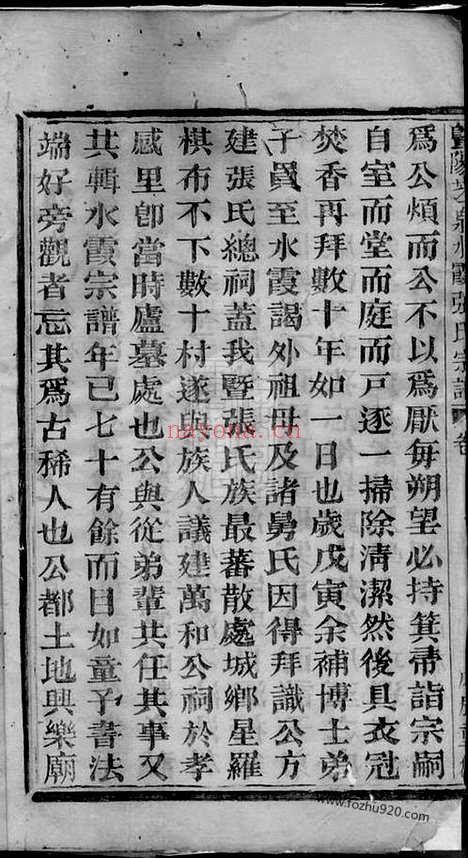 爲公煩而公不以爲厭每朔望必持箕帚詣宗嗣
自室而堂而庭而戸逐一掃除淸潔然後具衣冠
焚香再拜數十年如一日也歲戊寅余補博士弟
子員至水霞謁外祖母及諸舅氏因得拜識公方
建張氏總祠蓋我暨張氏族最蕃散處城鄉星羅
棋布不下數十村遂與族人議建萬和公祠於孝
感里卽當時廬墓處也公與從弟輩共任其事又
共輯水霞宗譜年已七十有餘而目如童予書法
端好旁觀者忘其爲古稀人也公都土地興樂廟
nayona.cn
www.fozhu920.com